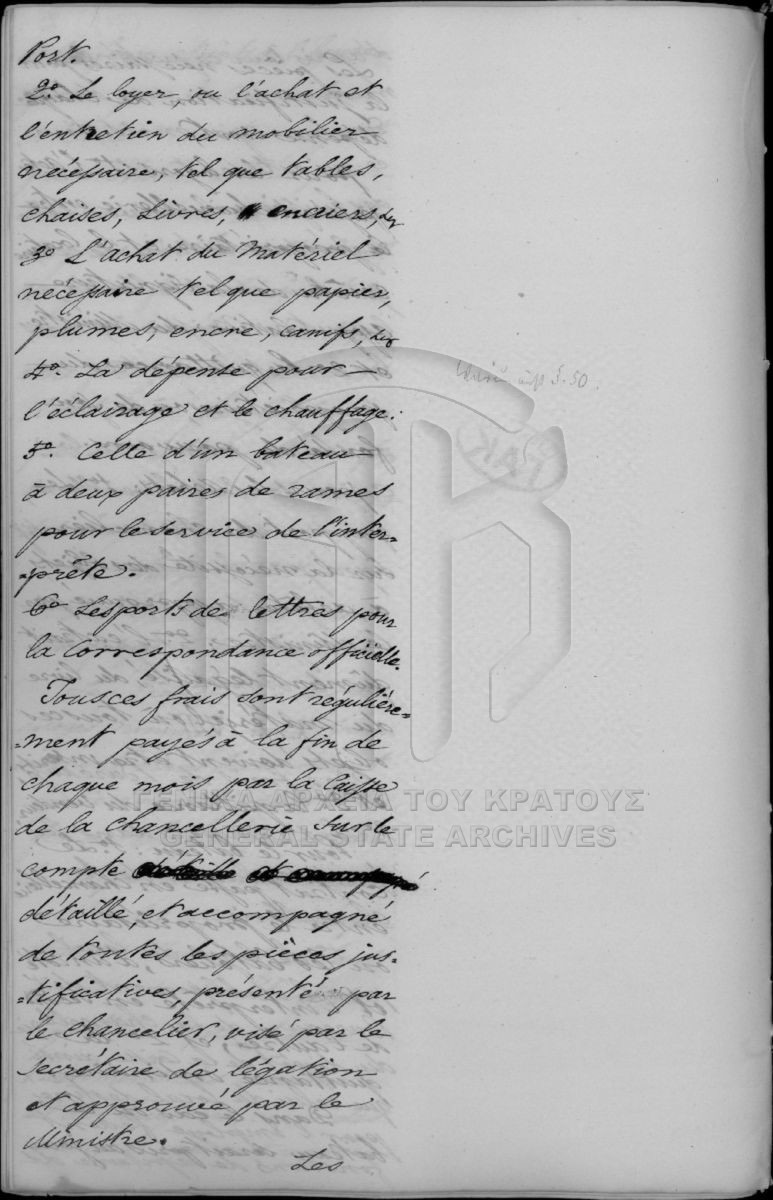 Port.
2.º Le loyer, ou l'achat et
l'entretien du mobilier
nécessaire, tel que tables,
chaises, livres, encriers, &c
3º L'achat du Matériel
nécessaire tel que papier,
plumes, encre, canifs, &c
4º. La dépense pour
l'éclairage et le chauffage.
5º. Celle d'un bateau
à deux paires de rames
pour le service de l'inter=
=prête.
6º Les ports de lettres pour
la Correspondance officielle.
Tous ces frais sont régulière=
=ment payés à la fin de
chaque mois par la Caisse
de la Chancellerie sur le
compte
détaillé, et accompagné
de toutes les pièces jus=
=tificatives, présenté par
le Chancelier, visé par le
Secrétaire de légation
et approuvé par le
Ministre.
Les
5.50.
ΓΕΝΙΚΑ ΑΡΧΕΙΑ ΤΟΥ ΚΡΑΤΟΥΣ
GENERAL STATE ARCHIVES